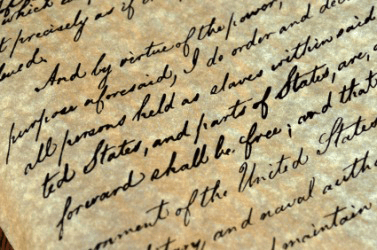 which c
t precisely as if
dewed.
And by virtue of the power,
purpose aforesaid, I do order and dec
all persons held as slaves within said
ted States, and parts of States, are,
forward shall be free; and that
ernment of the United States
and naval autho
maintain